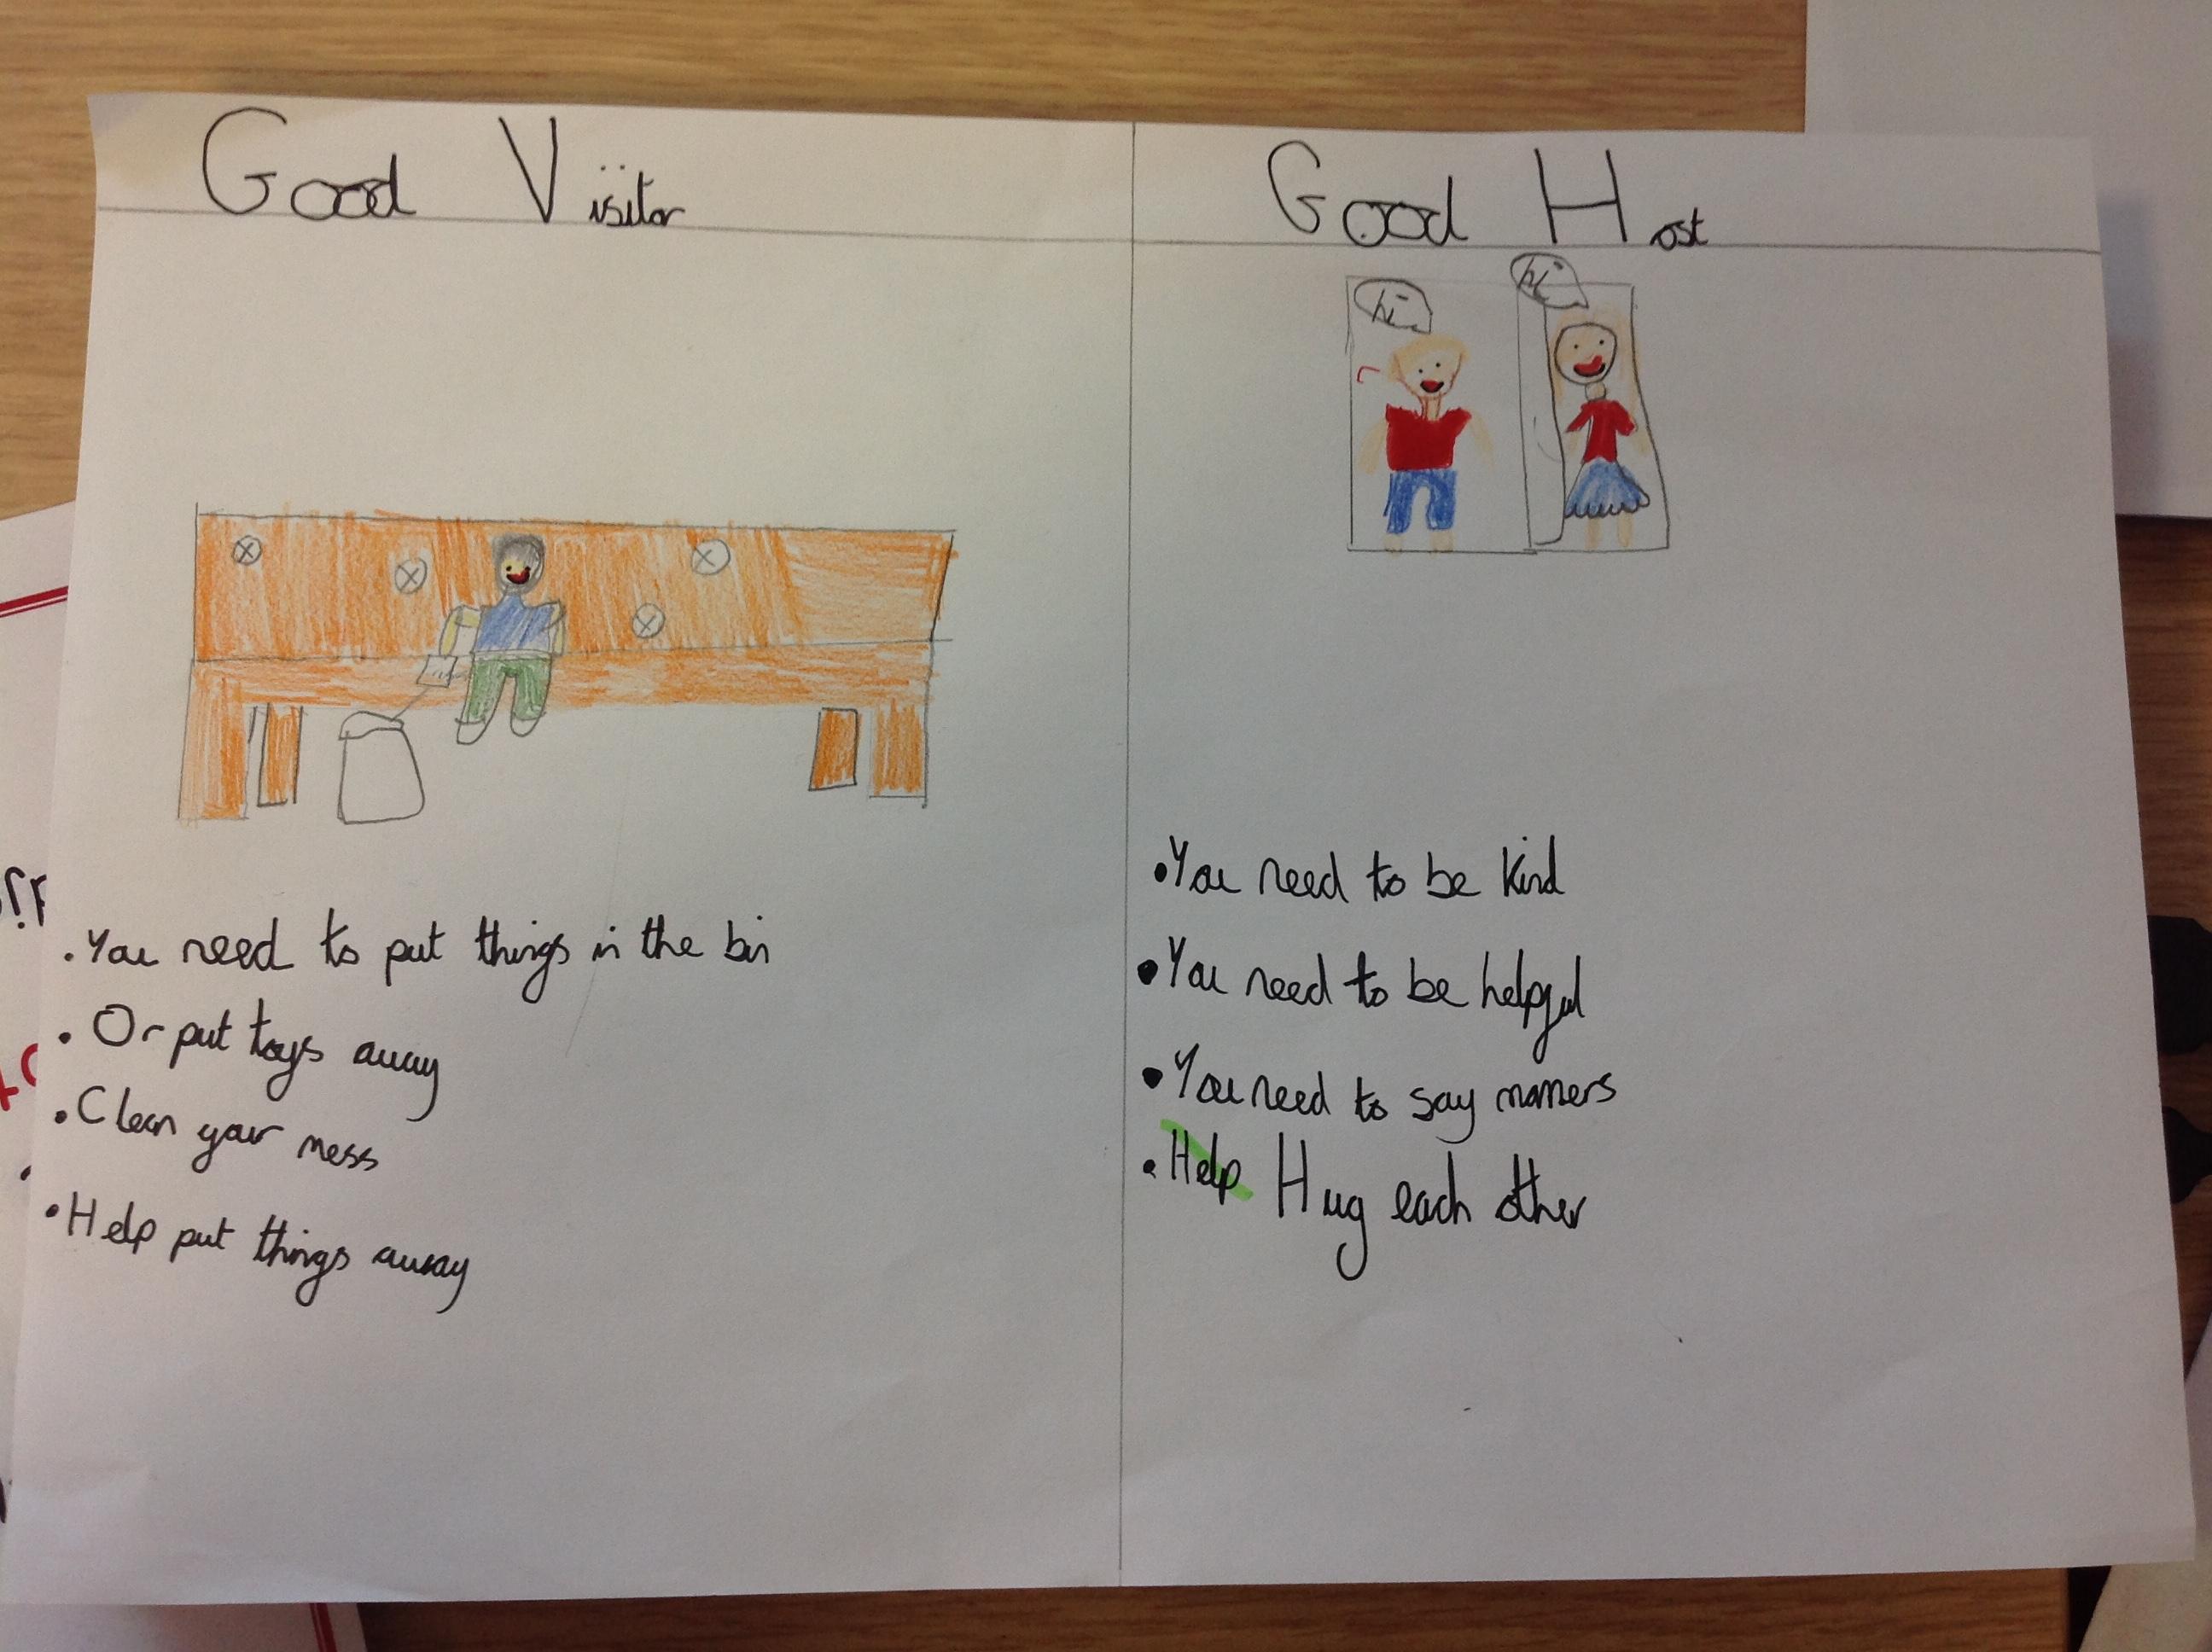 Good Visitor
You need to put things in the bin
Or put toys away
Clean your mess
Help put things away
Good Host
hi
hi
You need to be kind
You need to be helpful
You need to say manners
Help Hug each other